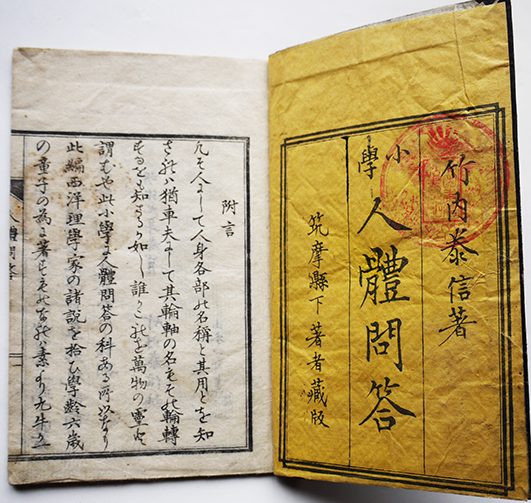 竹内泰信著
小學
人體問答
筑摩縣下著者藏版
附言
凡そ人にして人身各部の名稱と其用とを知
さるハ猶車夫にして其輪軸の名をその輪轉
するを知さるか如し誰かこれを萬物の靈と
謂むや此小學に人體問答の科ある所以なり
此編西洋理學家の諸說を拾ひ學齡六歲
の童子の為に著す
人體問答